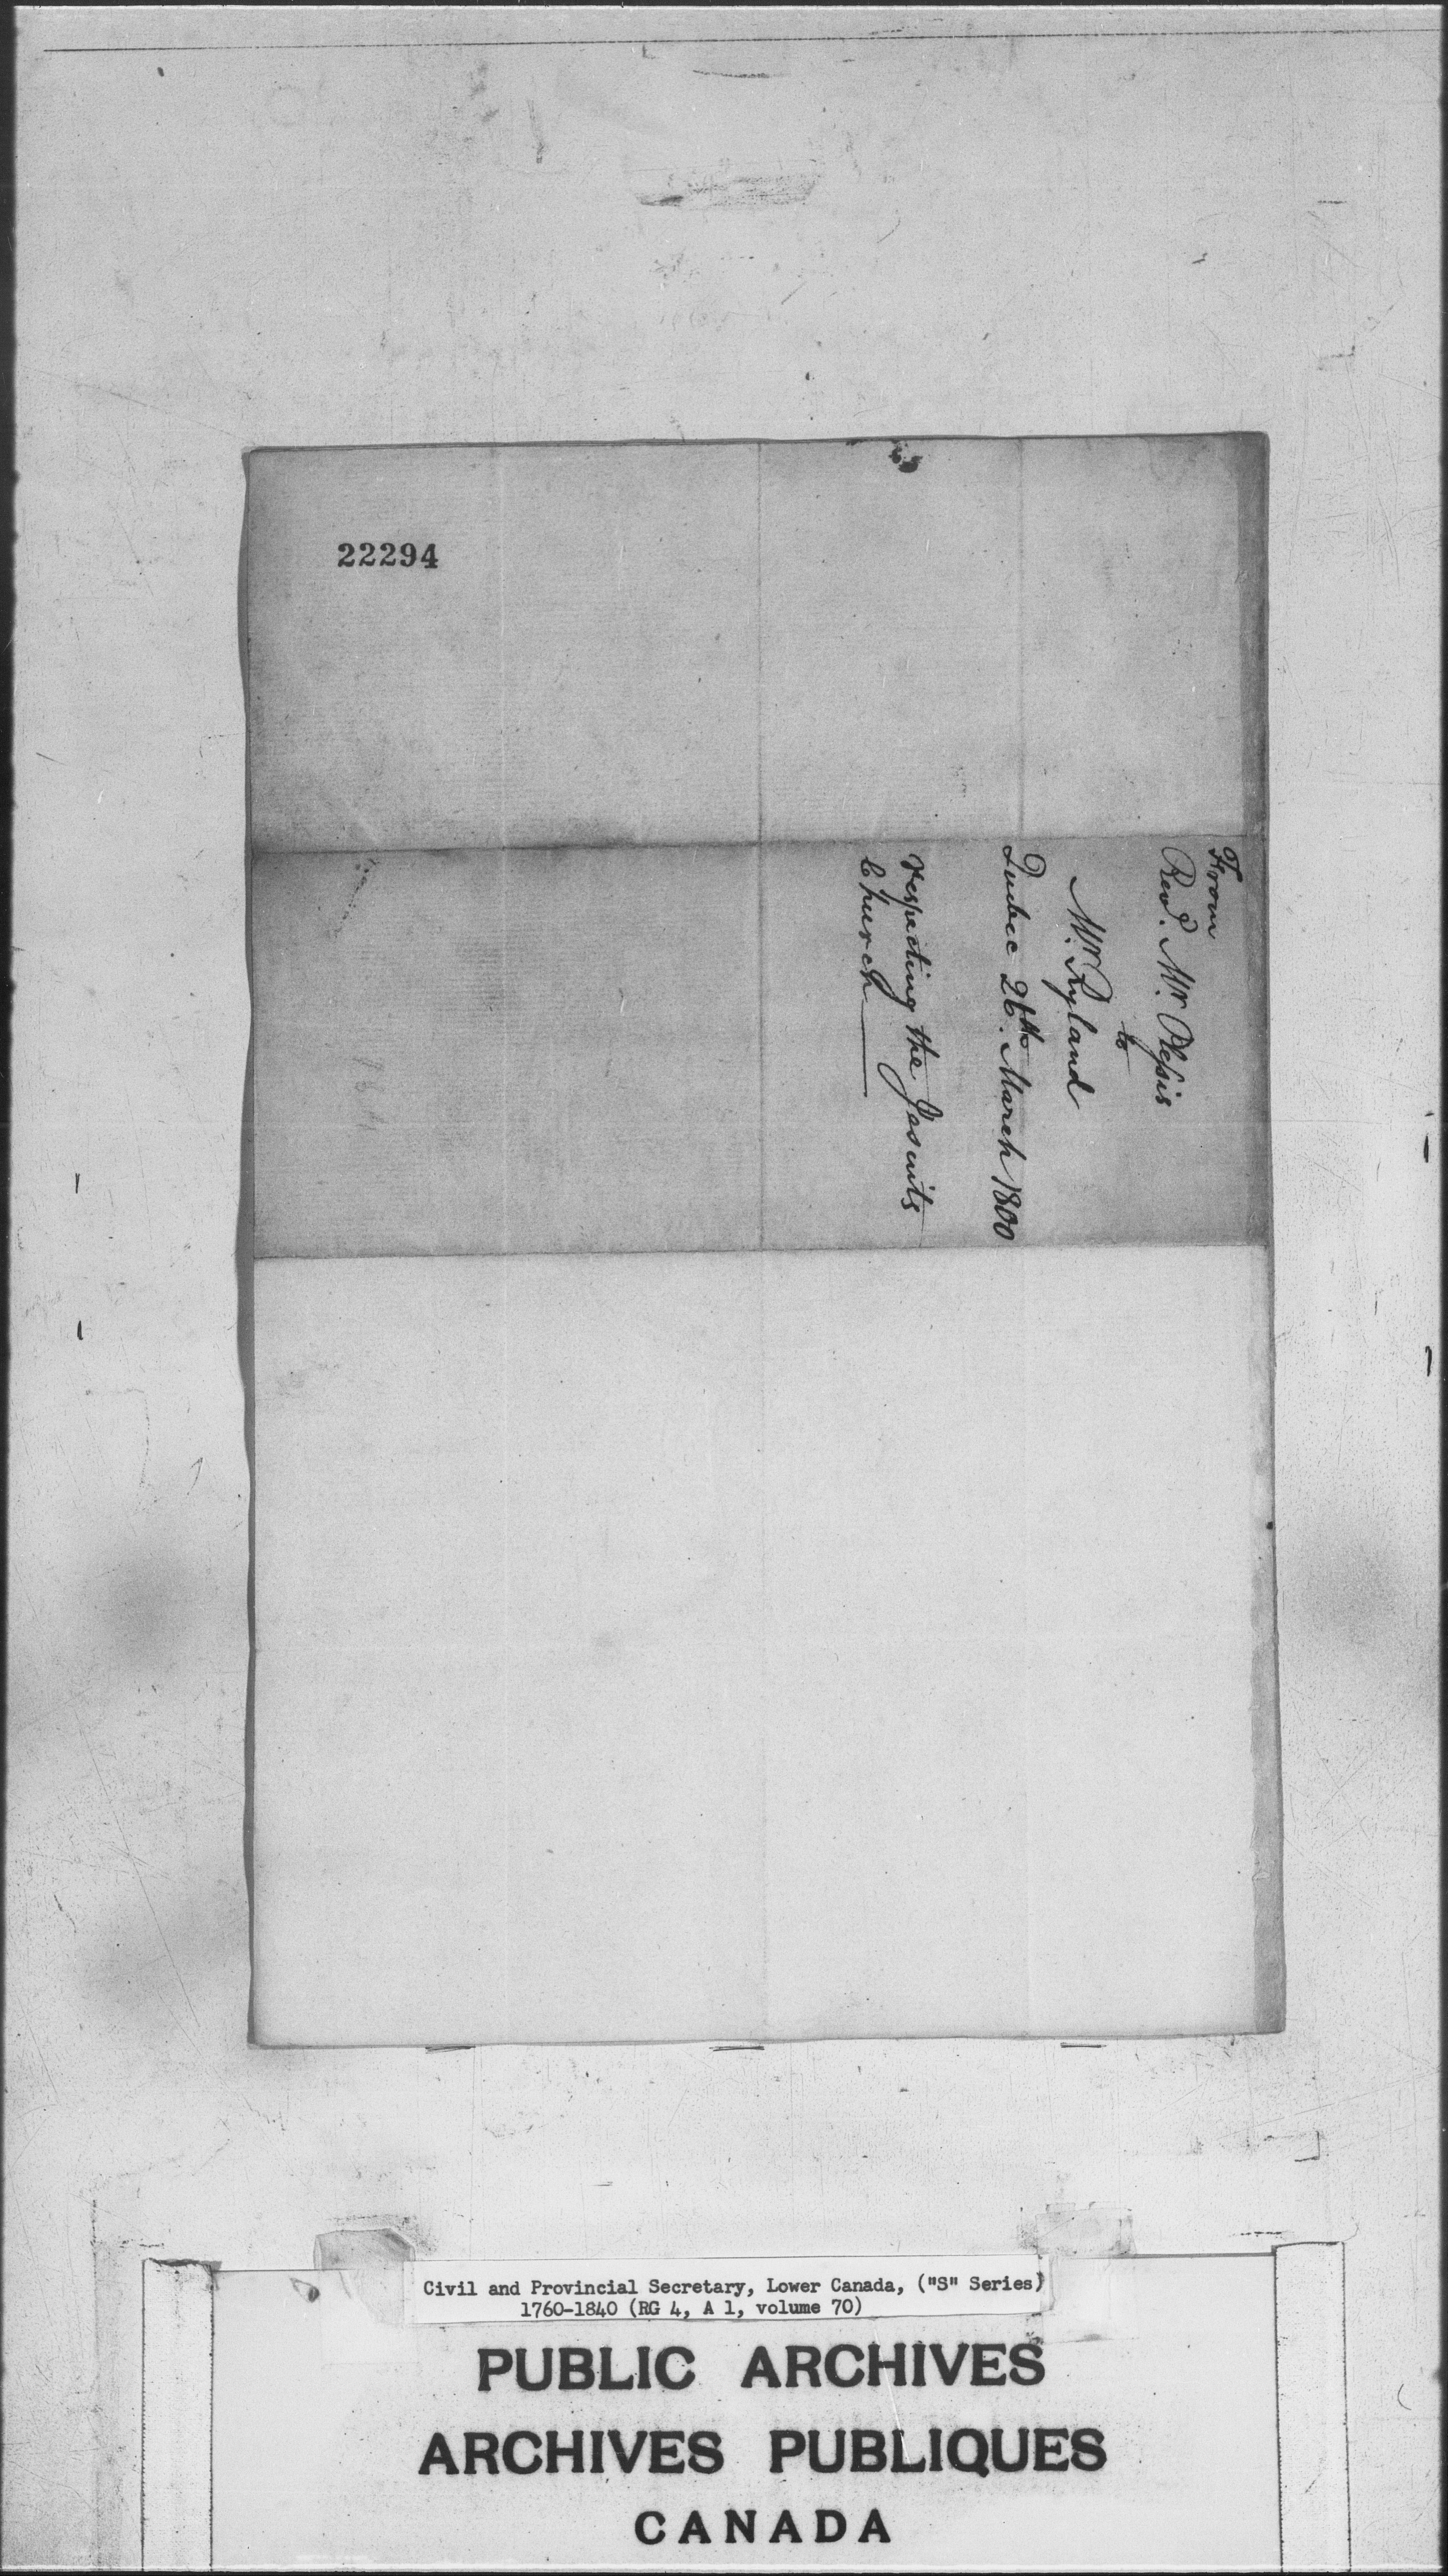 22294
From
Revd. Mr. Plessis
to
Mr. Ryland
Quebec 26th. March 1800
respecting the Jesuits
Church
Civil and Provincial Secretary, Lower Canada, ("S" Series)
1760-1840 (RG 4, A 1, volume 70)
PUBLIC ARCHIVES
ARCHIVES PUBLIQUES
CANADA